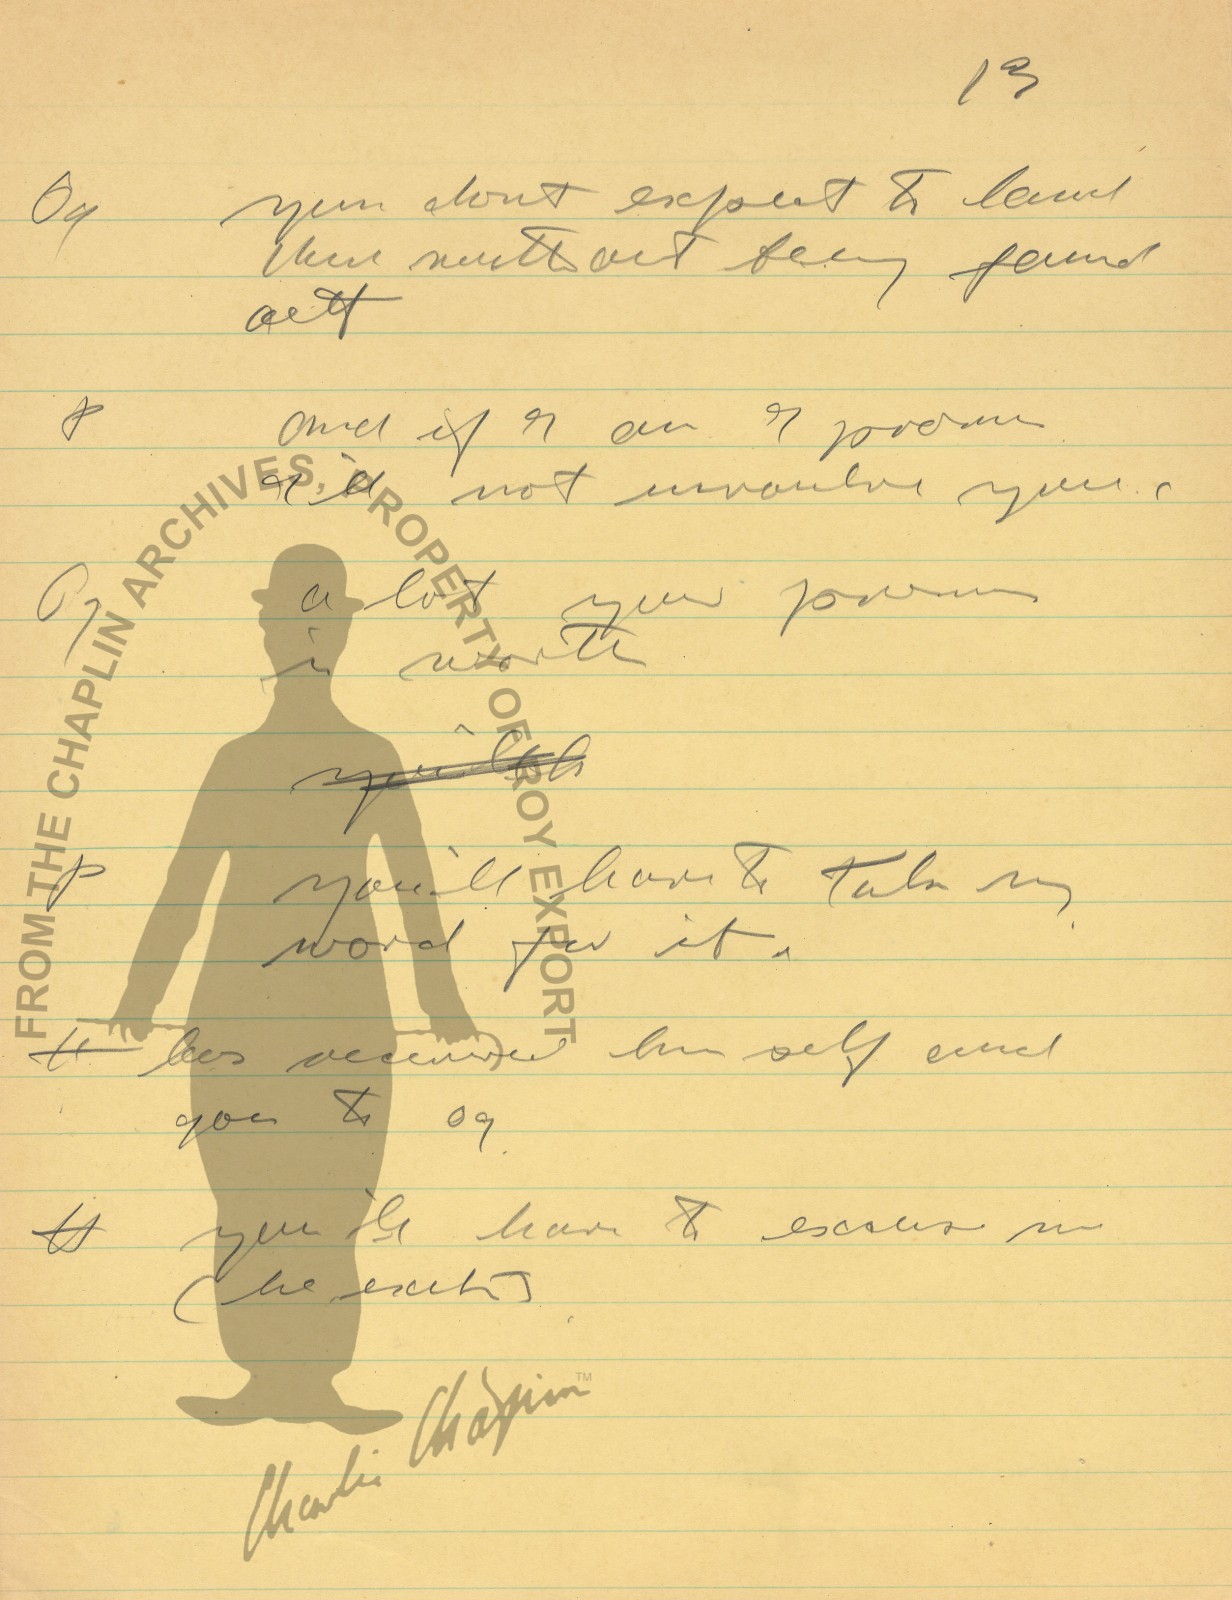 13
Og you dont expect to land
there without being found
out
P and if I am I promise
I'll not involve you.
Og a lot your promise
is worth
P you'll have to take my
word for it.
H has recovered himself and
goes to Og
H you'll have to excuse me
(he exits)
FROM THE CHAPLIN ARCHIVES, PROPERTY OF ROY EXPORT
Charlie Chaplin TM